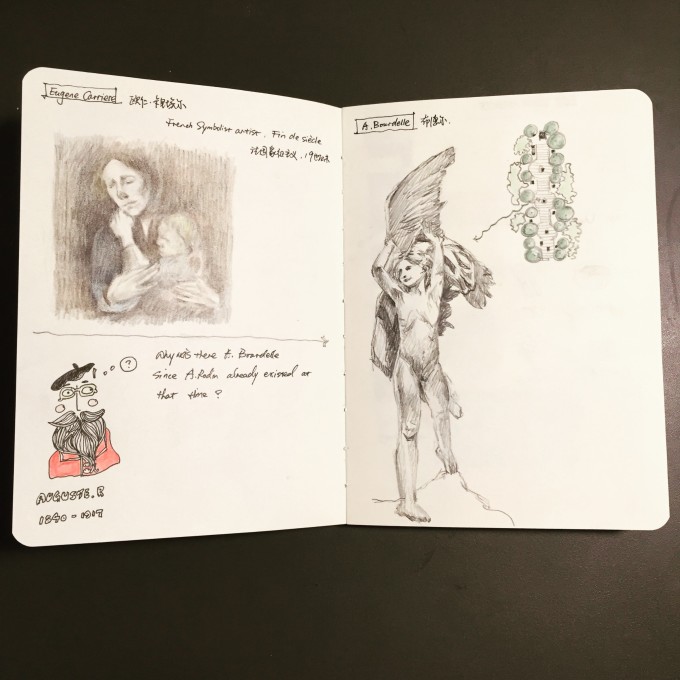 Eugene Carriere 欧仁·卡里埃尔
French Symbolist artist. Fin de siècle
法国象征主义. 19世纪末
?
Why was there E. Bourdelle
since A. Rodin already existed at
that time ?
AUGUSTE. R
1840 - 1917
A. Bourdelle 布德尔.